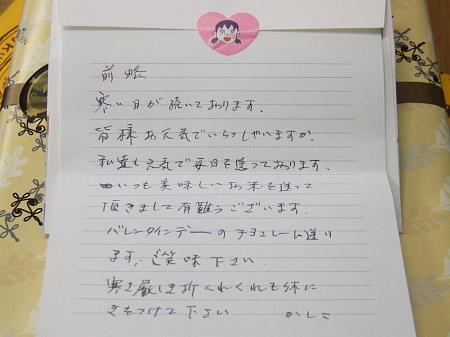 前略
寒い日が続いております。
皆様お元気でいらっしゃいますか。
私達も元気で毎日を送っております。
いつも美味しいお米を送って
頂きまして有難うございます。
バレンタインデーのチョコレート送り
ます。ご笑味下さい。
寒さ厳しき折くれぐれも体に
きをつけて下さい かしこ